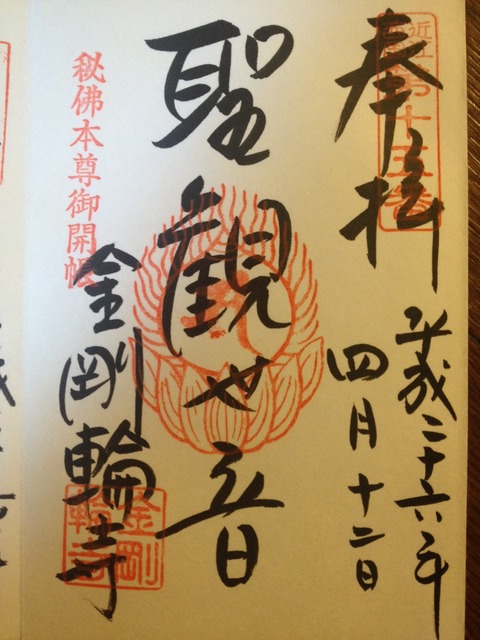 近江西国
第十五番
奉拝
平成二十六年
四月十二日
聖観世音
秘佛本尊御開帳
金剛輪寺
金剛
輪寺